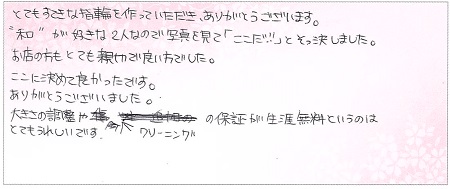 とてもすてきな指輪を作っていただき、ありがとうございます。
"和"が好きな2人なので写真を見て「ここだ!!」とそっ決しました。
お店の方もとても親切で良い方でした。
ここに決めて良かったです。
ありがとうございました。
大きさの調整や の保証が生涯無料というのは
クリーニング
とてもうれしいです。